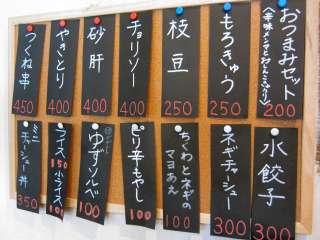 おつまみセット
(辛味メンマとおしんこ
200
もろきゅう
250
枝豆
250
チョリソー
400
砂肝
400
やきとり
400
つくね串
450
水餃子
300
ネギチャーシュー
300
ちくわとネギの
マヨあえ
100
ピリ辛もやし
100
ゆずソルベ
100
ライス
150
小ライス
100
ミニ
チャーシュー丼
350